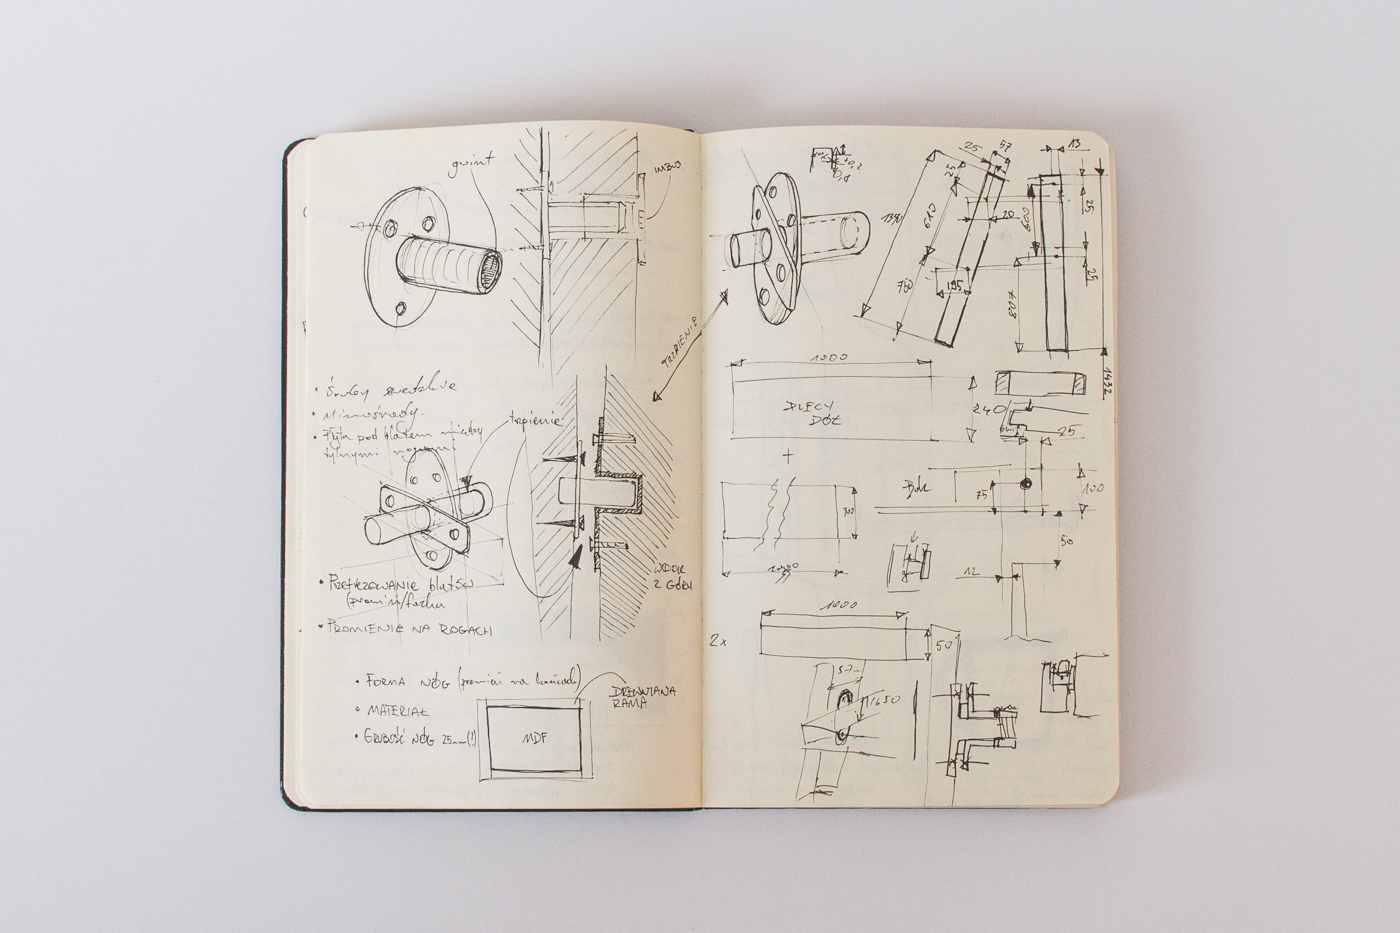 gwint
IMBUS
• Śruby
• Mimośrody.
• Płyta pod blatem między
tylnymi nogami
trzpienie
TRZPIENIE
WIDOK
Z GÓRY
• PRZETREZOWANIE blatów
• PROMIENIE NA ROGACH
• FORMA NÓG (promień na końcach)
• MATERIAŁ
• GRUBOŚĆ NÓG 25mm(!)
DREWNIANA
RAMA
MDF
25
57
13
25
1390
610
20
600
25
25
760
195
1432
1000
PLECY
DÓŁ
240
25
+
Bok
75
100
300
50
12
1000
2x
50
57
1650